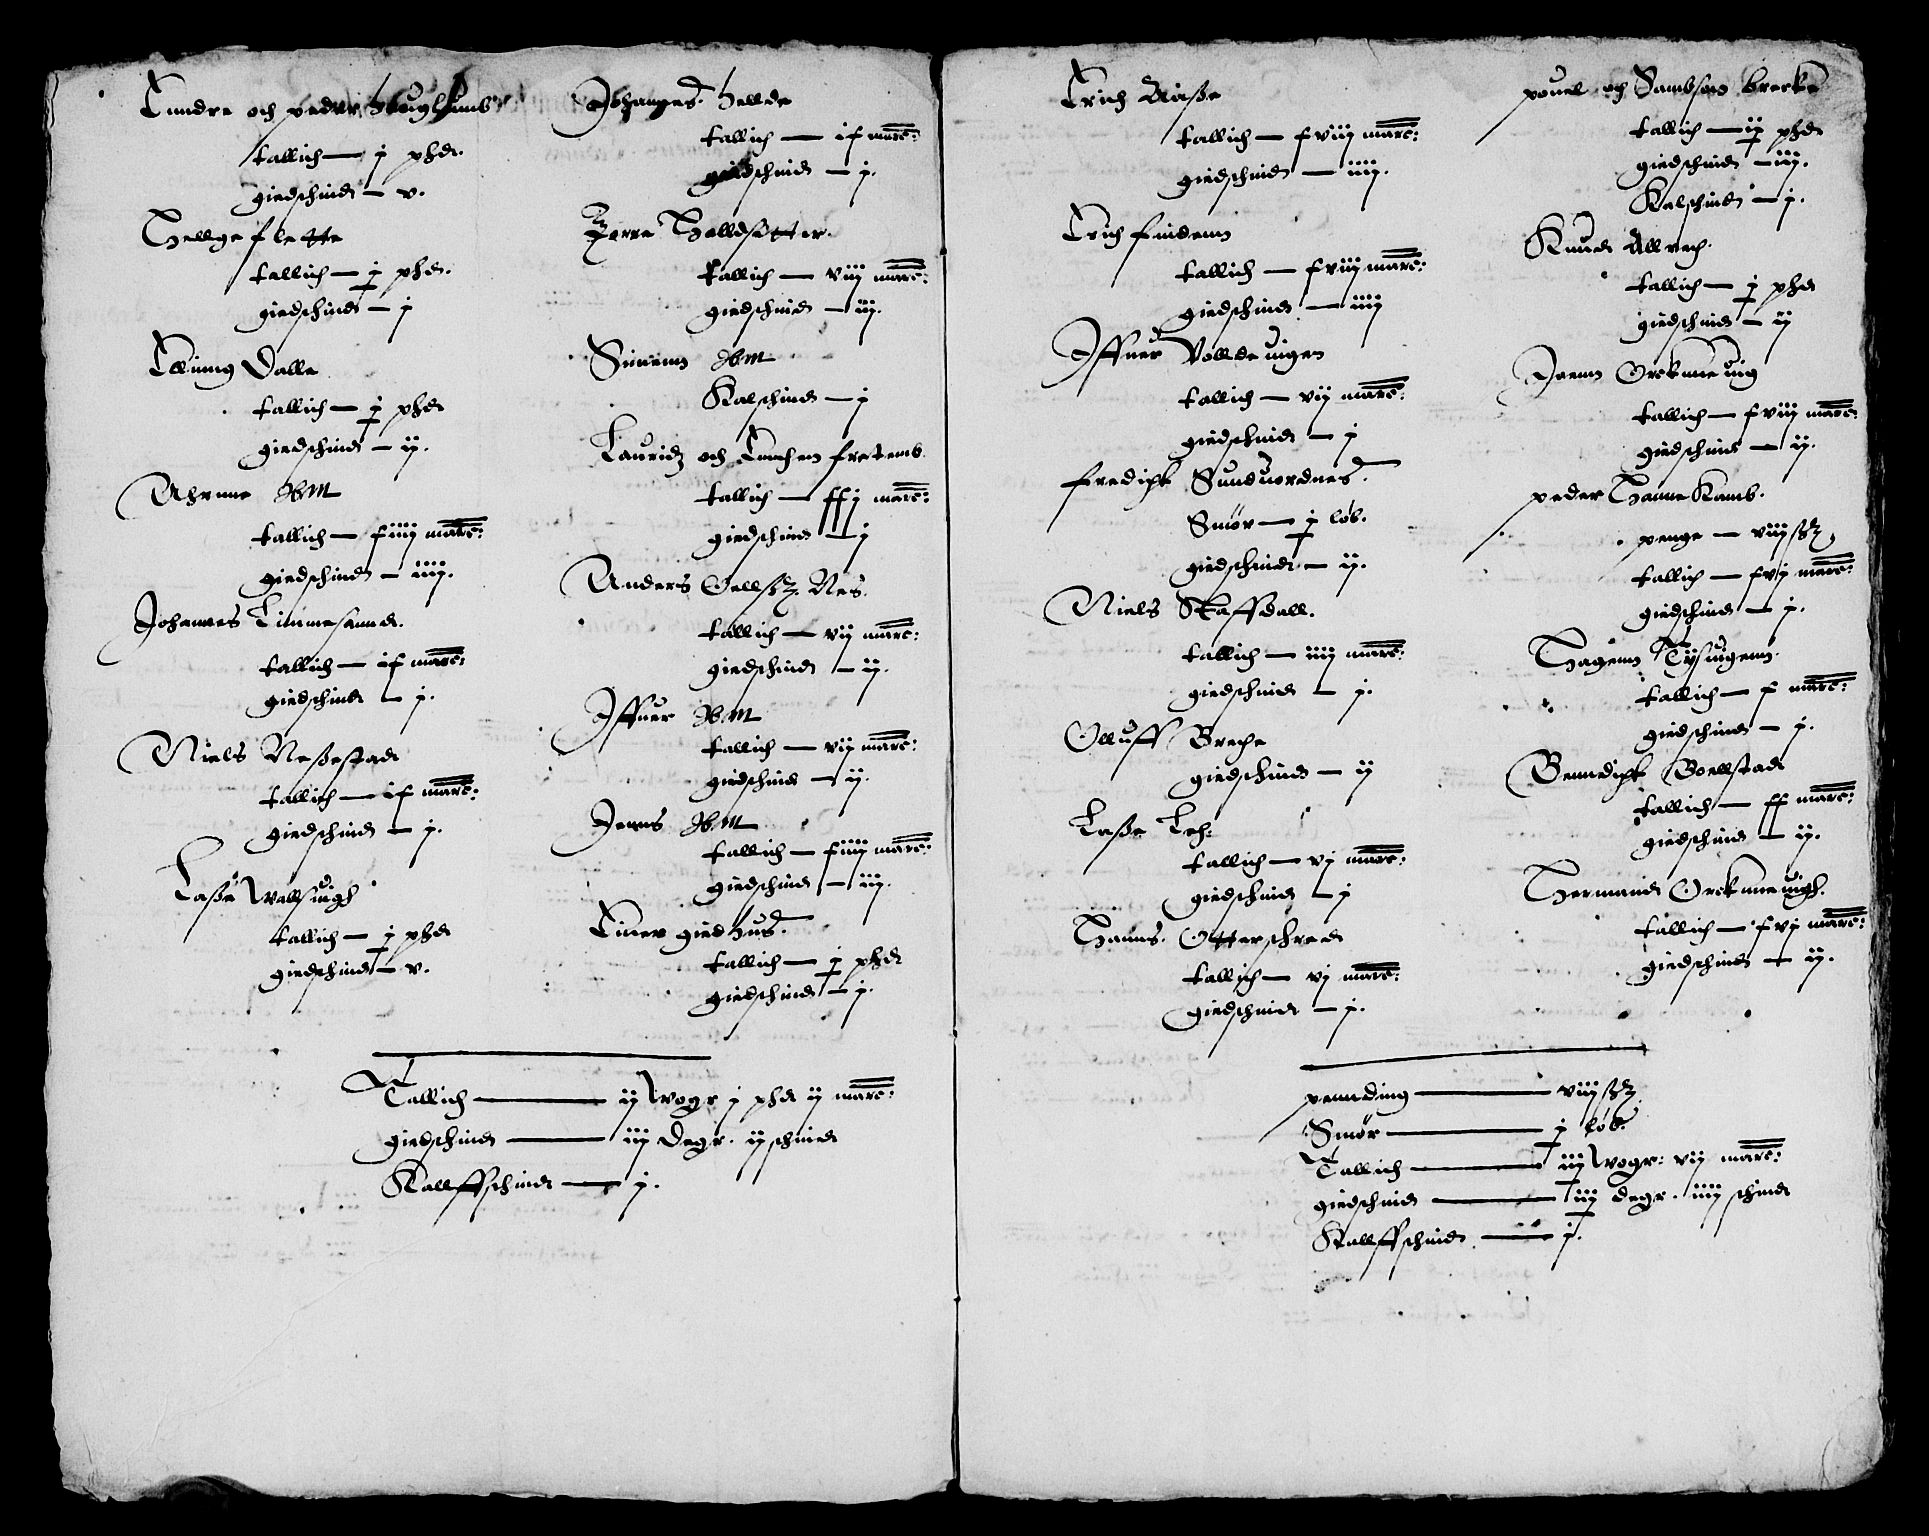 Endre och peder
tallich — j phd.
giedschind — v.
Hellge flette
tallich — j phd.
giedschind — j
Elling Dalle
tallich — j phd
giedschind — ij.
Ahrnne Ibm
tallich — xiiij marc:
giedschind — iiij.
Johannes Limmesannd.
tallich — ix marc:
giedschind — j.
Niels Neßestad
tallich — ix marc:
giedschind — j.
Laße Wallsuigh
tallich — j phd
giedschind — v.
Johannes Hellde
tallich — ix marc:
giedschind — j.
tallich — viij marc:
giedschind — iij.
Simenn Ibm
Kalschind — j
Lauridz och
tallich — xxj marc:
giedschind — j
Anders Oellßz Nes.
tallich — vij marc:
giedschind — ij.
Iffuer Ibm
tallich — vij marc:
giedschind — ij.
Jenns Ibm
tallich — xiiij marc:
giedschind — iij.
Einer giedhus.
tallich — j phd
giedschind — j.
Tallich — ij Woger j phd ij marc:
giedschind — iij deger. ij schind
Kallffschind — j.
Erich Aaße
tallich — xviij marc:
giedschind — iiij.
Erich findenn
tallich — xviij marc:
giedschind — iiij
Iffuer Volldeuigen
tallich — vij marc:
giedschind — j
fredicht Sunduordnes.
Smør — j løb.
giedschind — ij.
Niels Staffdall.
tallich — iiij marc:
giedschind — j.
Olluff Breche
giedschind — ij
Laße Leh:
tallich — vj marc:
giedschind — j
Hanns. Otterschred
tallich — vj marc:
giedschind — j.
pouel och Sambson brecke
tallich — ij phd
giedschind — iij.
Kalschind — j.
Knud Allrech.
tallich — j phd
giedschind — ij
Joenn Orcknneuig
tallich — xviij marc:
giedschind — ij.
peder Hannekamb.
penge — viij ßz,
tallich — xvj marc:
giedschind — j.
Hagenn Tysuigenn.
tallich — x marc:
giedschind — j.
Benndicht Boellstad
tallich — xx marc:
giedschind — ij.
Hermannd Orcknneuigh.
tallich — xvj marc:
giedschind — ij.
pennding — viij ßz
Smør — j løb.
Tallich — iij Woger: vij marc:
giedschind — iij deger. iiij schind
Kallffschind — j.